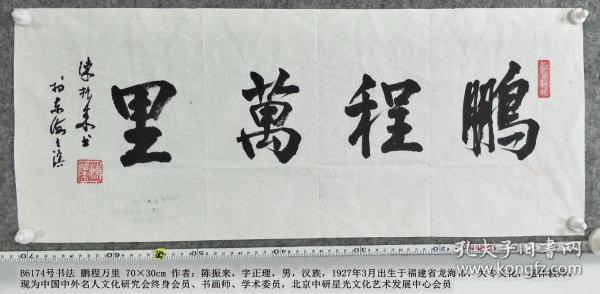 鵬程萬里
陳振來书
於东海之滨
B6174号书法 鹏程万里 70×30cm 作者：陈振来，字正理，男，汉族，1927年3月出生于福建省龙海市，大专文化，退休教师，
现为中国中外名人文化研究会终身会员、书画师、学术委员，北京中研星光文化艺术发展中心会员
孔夫子旧书网